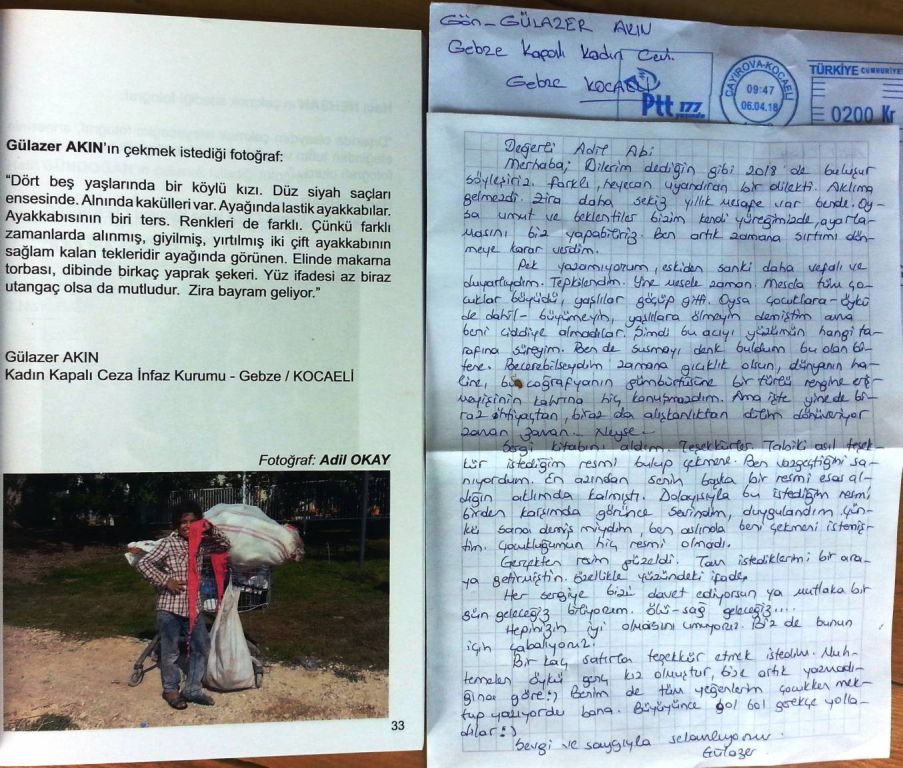 Gülazer AKIN'ın çekmek istediği fotoğraf:
“Dört beş yaşlarında bir köylü kızı. Düz siyah saçları
ensesinde. Alnında kakülleri var. Ayağında lastik ayakkabılar.
Ayakkabısının biri ters. Renkleri de farklı. Çünkü farklı
zamanlarda alınmış, giyilmiş, yırtılmış iki çift ayakkabının
sağlam kalan tekleridir ayağında görünen. Elinde makarna
torbası, dibinde birkaç yaprak şekeri. Yüz ifadesi az biraz
utangaç olsa da mutludur. Zira bayram geliyor.”
Gülazer AKIN
Kadın Kapalı Ceza İnfaz Kurumu - Gebze / KOCAELİ
Fotoğraf: Adil OKAY
33
Gön- GÜLAZER AKIN
Gebze Kapalı Kadın Cevi.
Gebze KOCAELİ
Ptt 177
ÇAYIROVA-KOCAELİ
09:47
06.04.18
TÜRKİYE CUMHURİYETİ
0200 Kr
Değerli Adil Abi
Merhaba; Dilerim dediğin gibi 2018'de buluşur
söyleşiriz. Farklı, heyecan uyandıran bir dilekti. Aklıma
gelmezdi. Zira daha sekiz yıllık mesafe var bende. Oy-
sa umut ve beklentiler bizim kendi yüreğimizde, ayarla-
masını biz yapabiliriz. Ben artık zamana sırtımı dön-
meye karar verdim.
Pek yazamıyorum, eskiden sanki daha vefalı ve
duyarlıydım. Tepkilendim. Yine mesele zaman. Mesela tüm ço-
cuklar büyüdü, yaşlılar göçüp gitti. Oysa çocuklara -Öykü
de dahil- büyümeyin, yaşlılara ölmeyin demiştim ama
beni ciddiye almadılar. Şimdi bu acıyı yüzümün hangi ta-
rafına süreyim. Ben de susmayı denk buldum bu olan bi-
tene. Becerebilseydim zamana gıcıklık olsun, dünyanın ha-
line, bu coğrafyanın gümbürtüsüne bir türlü rengine eri-
şmeyişinin kahrına hiç konuşmazdım. Ama işte yine de bi-
raz ihtiyaçtan, biraz da alışkanlıktan dilim dönüveriyor
zaman zaman... Neyse..
Sergi kitabını aldım. Teşekkürler. Tabiki asıl teşek-
kür istediğim resmi bulup çekmene. Ben vazgeçtiğini sa-
nıyordum. En azından senin başka bir resmi esas al-
dığın aklımda kalmıştı. Dolayısıyla bu istediğim resmi
birden karşımda görünce sevindim, duygulandım. Çün-
kü sana demiş miydim, ben aslında beni çekmeni istemiş-
tim. Çocukluğumun hiç resmi olmadı.
Gerçekten resim güzeldi. Tam istediklerimi bir ara-
ya getirmiştin. Özellikle yüzündeki ifade,
Her sergiye bizi davet ediyorsun ya mutlaka bir
gün geleceğiz biliyorum. Ölü-sağ geleceğiz....
Hepinizin iyi olmasını umuyoruz. Biz de bunun
için çabalıyoruz.
Bir kaç satırla teşekkür etmek istedim. Muh-
temelen Öykü genç kız olmuştur, bize artık yazmadı-
ğına göre:) Benim de tüm yeğenlerim çocukken mek-
tup yazıyordu bana. Büyüyünce bol bol gerekçe yolla-
dılar:)
Sevgi ve saygıyla selamlıyorum.
Gülazer